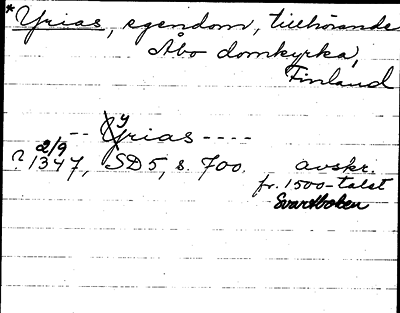 *Yrias, egendom, tillhörande
Åbo domkyrka,
Finland
-- Yrias ----
2/9
? 1347, SD 5, s. 700. avskr.
fr. 1500-talet
Svartboken